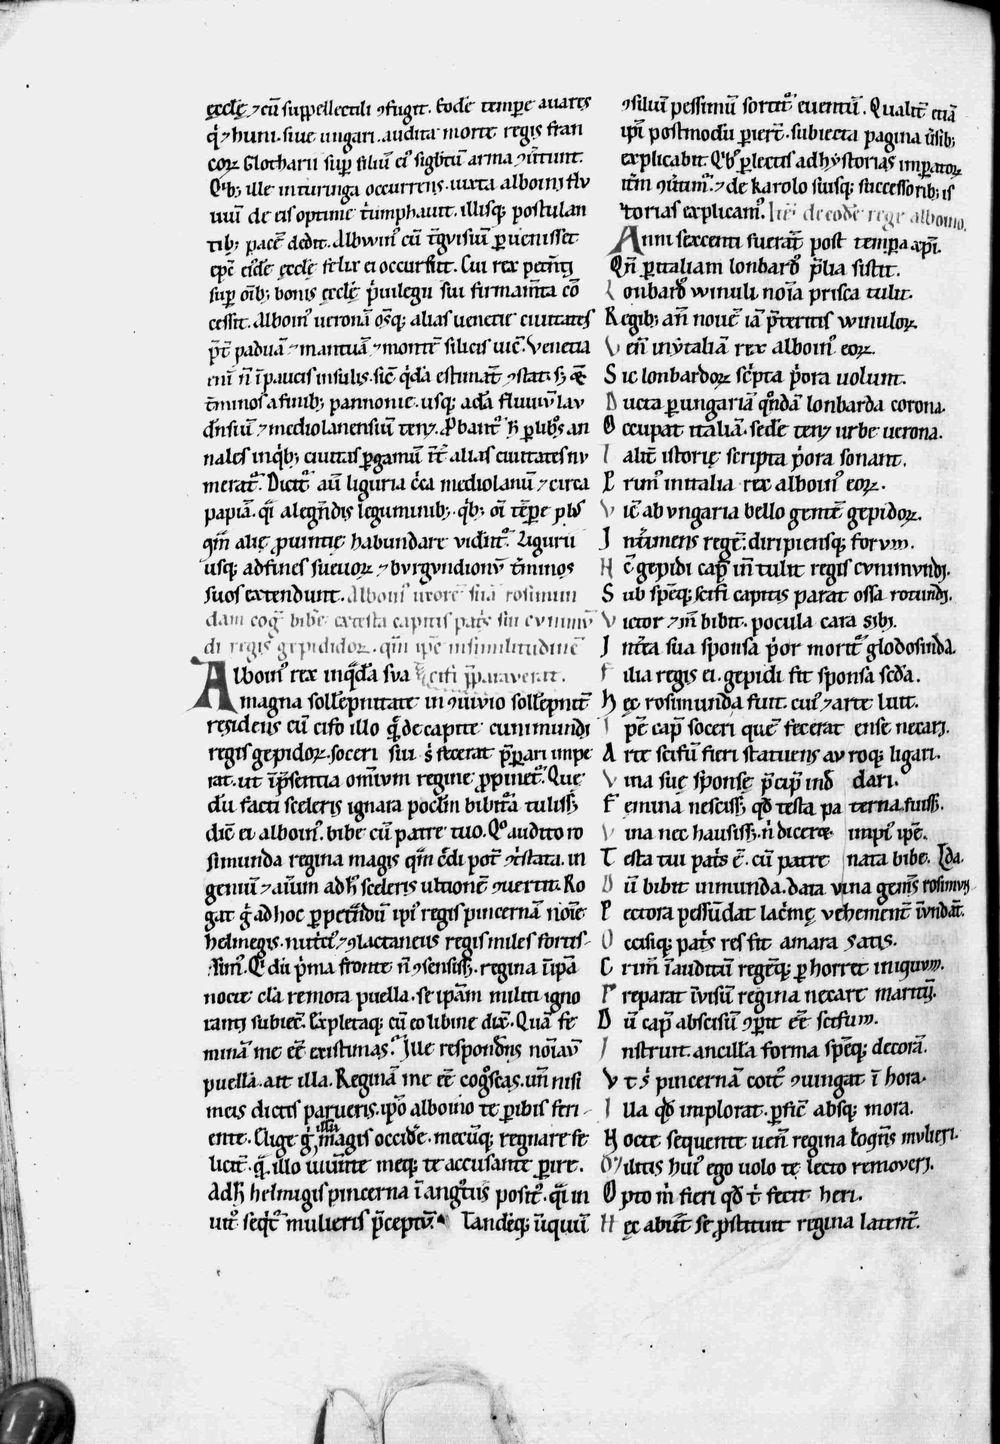 ęcclę ⁊ cū suppellectili ɔfugit. Eodē tempe auares
q̇ ⁊ huni. siue ungari. audita morte regis fran
coꝝ Glotharii suꝑ filiū eiꝰ sigb̄tū arma ɔū̄tunt.
Qb; ille in turinga occurrens. iuxta alboinj flu
uiū de eis optime tͥumphauit. illisq; postulan
tib; pacē dedit. Albwinꝰ cū tͥguisiū ꝑuenisset
ep̄c eiꝰdē ęcclę felix ei occurrit. Cui rex petenti
suꝑ oīb; bonis ęcclę pͥuilegii sui firmam̄ta cō
cessit. Alboinꝰ ueronā oēsq; alias uenetie ciuitates
p̄t paduā ⁊ mantuā ⁊ montē silicis uicē. Venetia
enī n̄ ī paucis insulis. sic̄ qͥdā estimāt ɔstat. s;
tͥminos a finib; pannonie. usq; ad a fluuiū lau
dn̄siū ⁊ mediolanensiū teñ. Pbantͬ h̄ ꝑ libͦs an
nales inqͥb; ciuitas ꝑgamū īt̄ alias ciuitates nu
meratͬ. Dicitͬ aū liguria cͥca mediolanū ⁊ circa
papiā. qͥ a legēdis leguminib;. qͥb; oī tēꝑe plꝰ
qͣm alię ꝓuintię habundare vidn̄tͬ. Ligurii
usq; ad fines sueuoꝝ ⁊ burgundionū tͥminos
suos extendunt. Alboinꝰ uxorē suā rosimun
dam cog̃ bibe ex testa capitis patͥs sui cunimū
di regis gepididoꝝ. quī ipe in similitudinē
Alboinꝰ rex in qͣdā sua scifi p̄parauerat.
magna sollēpnitate in ɔuiuio sollēpnit̄
residens cū cifo illo q̄ de capite cunimundi
regis gepidoꝝ. soceri sui s̄ fecerat p̄pari impe
rat. ut ī p̄sentia omīum regine ꝓpinetͬ. Que
dū facti sceleris ignara poclm bibitͣa tulisset
dic̄ ei alboinꝰ. bibe cū patre tuo. Qͦ audito ro
simunda regina magis qͣm cͥdi potͬ ɔtͥstata. in
geniū ⁊ aīum adhͨ sceleris ultionē ɔuertit. Ro
gat gͦ ad hoc ꝑpetrādū ipiꝰ regis pincernā noīe
helmegis. nutͥcꝰ ⁊ ɔlactaneus regis miles fortis-
simꝰ. Q dū pͥma fronte n̄ ɔsensisset. regina ī ipā
nocte clā remota puella. se ipsam militi igno
ranti subiec̄. Expletaq; cū eo libine dix̄. Quā fe
minā me eē existimas. Ille respondēs noīaū
puellā. ait illa. Reginā me eē cog̃scas. un̄ nisi
meis dictis parueris. ipo alboino te ꝑibis feri-
ente. Elige gͦ illū magis occidē. mecūq; regnare fe
licit̄. qͣ illo uiuente meq; te accusante ꝑire.
Adhͨ helmigis pincerna ī angͦtiis positꝰ. quī in
uitꝰ seqͥtͬ mulieris p̄ceptū. Tandeq; ūiquiū
ɔsiliū pessimū sortitͬ euentū. Qualit̄ etiā
ipi postmodū ꝑiert̄. subiecta pagina uīsib;
explicabit. Qbꝰ ꝑlectis ad hystorias imꝑatoꝝ
it̄m ɔū̄timꝰ. ⁊ de karolo suisq; successorib; is
torias explicamꝰ. Itē de eodē rege alboino.
Anni sexcenti fuerāt post tempora xp̄i.
Qn̄ ꝑ italiam lonbardꝰ p̄lia sistit.
Lonbardꝰ winuli noīa prisca tulit.
Regib; an̄ nouē iā p̄teritis winuloꝝ.
Venͭ in ytaliā rex alboinꝰ eoꝝ.
Sic lonbardoꝝ scͥpta pͥora uolunt.
Ducta ꝑ ungariā qͦndā lonbarda corona.
Occupat italiā. sedē teñ urbe uerona.
Talit̄ istorię scripta pͥora sonant.
Primꝰ in italia rex alboinꝰ eoꝝ.
Vic̄ ab ungaria bello gentē gepidoꝝ.
Intͥmens regē. diripiensq; forum.
Hc̄ gepidi caꝑ īn tulit regis cunimundj.
Sub spēq; scifi capitis parat ossa rotundj.
Victor ⁊ īn bibit. pocula cara sibj.
Incͭa sua sponsa pͥor morit̄ͬ glodosinda.
Filia regis ei. gepidi fit sponsa scd̄a.
Hęc rosimunda fuit. cuiꝰ ⁊ arte luit.
Ipē capͭ soceri que fecerat ense necarj.
Arte scifūm fieri statuens auroq; ligari.
Vina suę sponsę p̄cip̄ ind dari.
Femina nescisset qd̄ testa paterna fuisset.
Vina nec hausisset. n̄ diceret impiꝰ ipē.
Testa tui patͥs ē. cū patre nata bibe.
Dū bibit inmunda. data vina gemēs rosimunda.
Pectora pessūdat lacͥmę vehement̄ īundāt.
Occisiq; patͥs res fit amara satis.
Crimͬ īauditū regēq; ꝑhorret iniquum.
Preparat īuisū regina necare maritū.
Dū capͭ abscisū ɔꝑit eē scifum.
Instruit. ancilla forma spēq; decorā.
Vt s̄ pincernā coitͬ ɔiungat ī hora.
Illa qd̄ implorat. ꝑfic̄ absq; mora.
Nocte sequente uen̄ regina locͦ mulierj.
Militis huiꝰ ego uolo te lecto removerj.
Opto m̄ fieri qd̄ tͥ fecit heri.
Hęc abiit̄ se ꝓstituit regina latent̄.